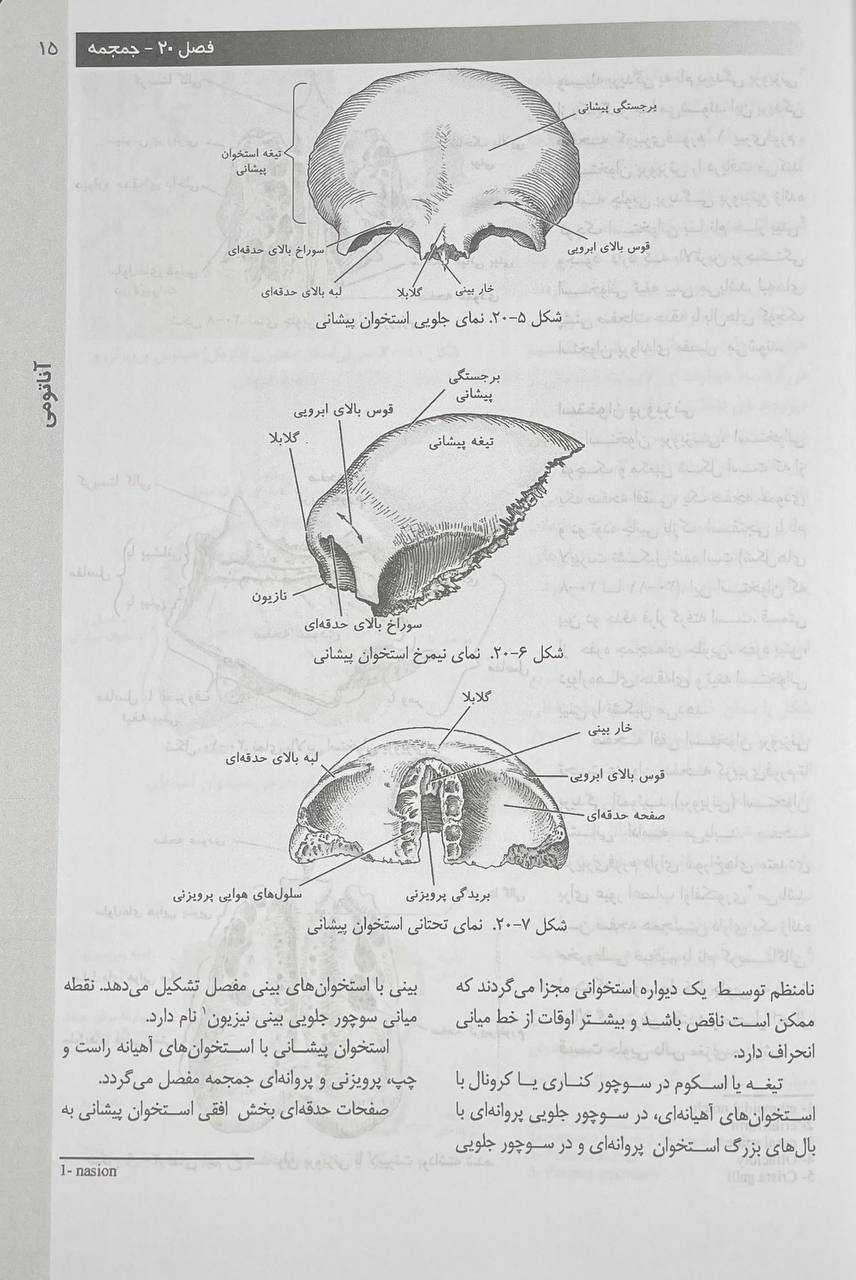 ۱۵
فصل ۲۰ - جمجمه
برجستگی پیشانی
تیغه استخوان
پیشانی
سوراخ بالای حدقه‌ای
قوس بالای ابرویی
لبه بالای حدقه‌ای
گلابلا
خار بینی
شکل ۵-۲۰. نمای جلویی استخوان پیشانی
آناتومی
برجستگی
پیشانی
قوس بالای ابرویی
گلابلا
تیغه پیشانی
نازیون
سوراخ بالای حدقه‌ای
شکل ۶-۲۰. نمای نیمرخ استخوان پیشانی
گلابلا
خار بینی
لبه بالای حدقه‌ای
قوس بالای ابرویی
صفحه حدقه‌ای
سلول‌های هوایی پرویزنی
بریدگی پرویزنی
شکل ۷-۲۰. نمای تحتانی استخوان پیشانی
نامنظم توسط یک دیواره استخوانی مجزا می‌گردند که
ممکن است ناقص باشد و بیشتر اوقات از خط میانی
انحراف دارد.
تیغه یا اسکوم در سوچور کناری یا کرونال با
استخوان‌های آهیانه‌ای، در سوچور جلویی پروانه‌ای با
بال‌های بزرگ استخوان پروانه‌ای و در سوچور جلویی
بینی با استخوان‌های بینی مفصل تشکیل می‌دهد. نقطه
میانی سوچور جلویی بینی نیزیون۱ نام دارد.
استخوان پیشانی با استخوان‌های آهیانه راست و
چپ، پرویزنی و پروانه‌ای جمجمه مفصل می‌گردد.
صفحات حدقه‌ای بخش افقی استخوان پیشانی به
1- nasion